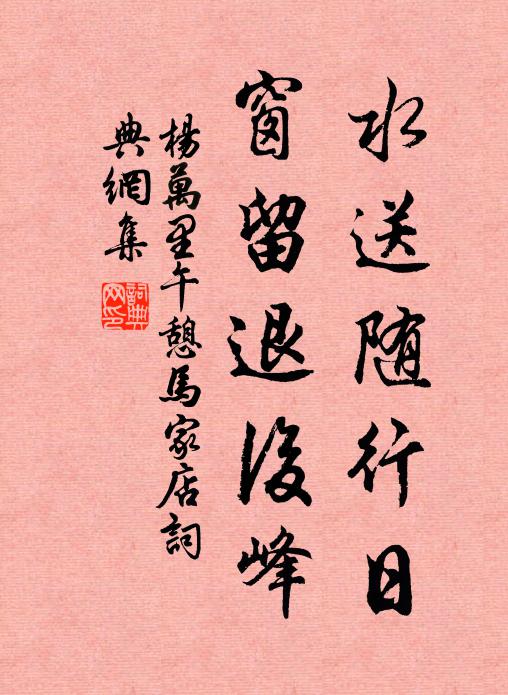 水送随行日
窗留退後峰
楊萬里午憩馬家店詞
典網集
詞典网印